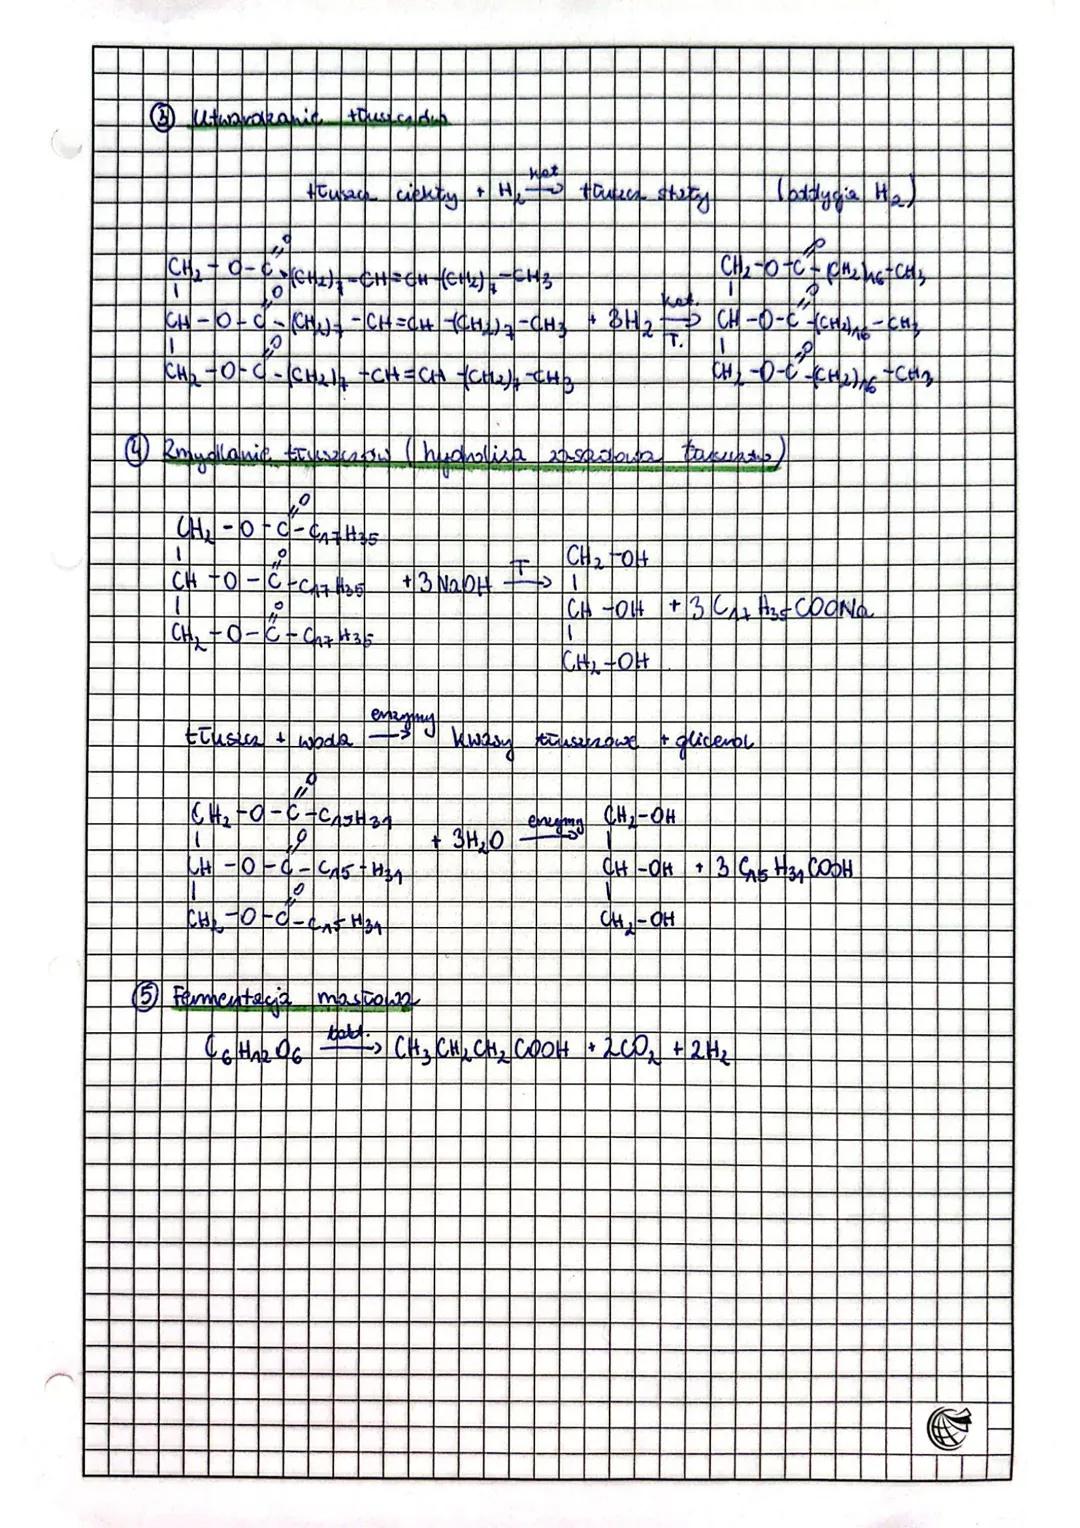 ③ Utwardzanie tłuszczów
tłuszcz ciekły + H₂ —kat→ tłuszcz stały (addycja H₂)
CH₂-O-C(=O)-(CH₂)₇-CH=CH-(CH₂)₇-CH₃
CH-O-C(=O)-(CH₂)₇-CH=CH-(CH₂)₇-CH₃ + 3H₂ —kat. T.→ CH₂-O-C(=O)-(CH₂)₁₆-CH₃
CH₂-O-C(=O)-(CH₂)₇-CH=CH-(CH₂)₇-CH₃
CH-O-C(=O)-(CH₂)₁₆-CH₃
CH₂-O-C(=O)-(CH₂)₁₆-CH₃
④ Zmydlanie tłuszczów (hydroliza zasadowa)
CH₂-O-C(=O)-C₁₇H₃₅
CH-O-C(=O)-C₁₇H₃₅ + 3NaOH —T→ CH₂-OH
CH₂-O-C(=O)-C₁₇H₃₅
CH-OH + 3C₁₇H₃₅COONa
CH₂-OH
tłuszcz + woda —enzymy→ kwasy tłuszczowe + glicerol
CH₂-O-C(=O)-C₁₅H₃₁
CH-O-C(=O)-C₁₅-H₃₁ + 3H₂O —enzymy→ CH₂-OH
CH₂-O-C(=O)-C₁₅H₃₁
CH-OH + 3C₁₅H₃₁COOH
CH₂-OH
⑤ Fermentacja masłowa
C₆H₁₂O₆ —bakt.→ CH₃CH₂CH₂COOH + 2CO₂ + 2H₂